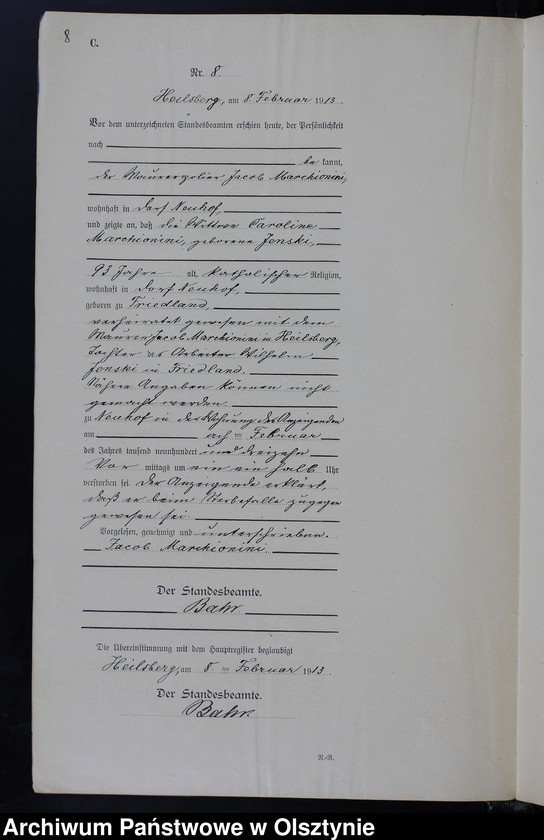 8
C.
Nr. 8.
Heilsberg, am 8. Februar 1913.
Vor dem unterzeichneten Standesbeamten erschien heute, der Persönlichkeit
nach
be kannt,
der Maurerpolier Jacob Marchionini,
wohnhaft in Dorf Neuhof,
und zeigte an, daß die Wittwe Caroline
Marchionini, geborene Jenski,
93 Jahre alt, katholischer Religion,
wohnhaft in Dorf Neuhof,
geboren zu Friedland,
verheiratet gewesen mit dem
Maurer Jacob Marchionini in Heilsberg,
Tochter des Arbeiter Wilhelm
Jenski in Friedland.
Nähere Angaben können nicht
gemacht werden.
zu Neuhof in der Wohnung des Anzeigenden
am acht en Februar
des Jahres tausend neunhundert und dreizehn
Vor mittags um ein ein halb Uhr
verstorben sei. Der Anzeigende erklärt,
daß er beim Sterbefalle zugegen
gewesen sei.
Vorgelesen, genehmigt und unterschrieben.
Jacob Marchionini.
Der Standesbeamte.
Bahr.
Die Übereinstimmung mit dem Hauptregister beglaubigt
Heilsberg, am 8. ten Februar 1913.
Der Standesbeamte.
Bahr.
Archiwum Państwowe w Olsztynie